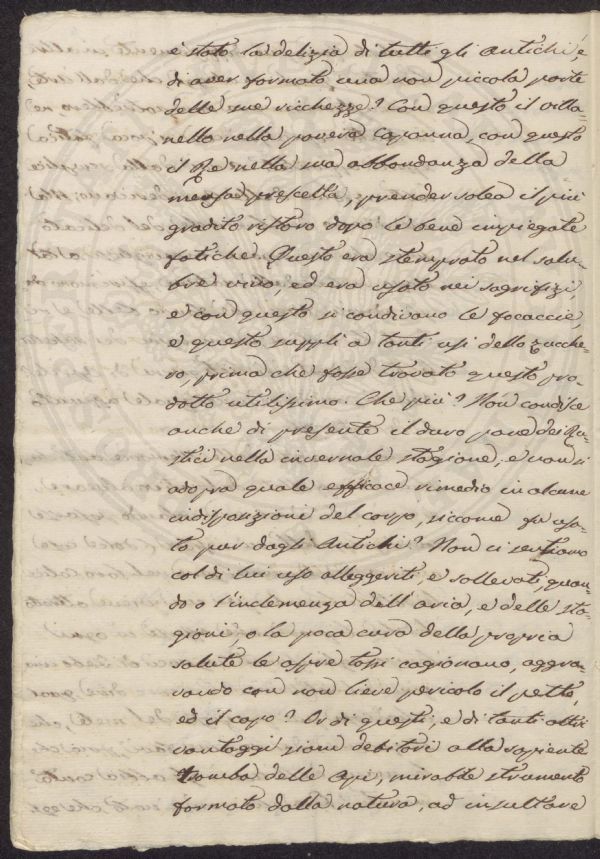 è stato la delizia di tutti gli Antichi, e
di aver formato una non piccola parte
delle sue ricchezze? Con questo il villa-
nello nella povera Capanna, con questo
il Re nella sua abbondanza della
mensa prescelta, prender solea il più
gradito ristoro dopo le bene impiegate
fatiche. Questo era stemprato nel salu-
bre vino, ed era usato nei sagrifizi,
e con questo si condivano le focaccie,
e questo supplì a tanti usi dello zucche-
ro, prima che fosse trovato questo pro-
dotto utilissimo. Che più? Non condisce
anche di presente il duro pane dei Ru-
stici nella invernale stagione, e non si
adopra quale efficace rimedio in alcune
indisposizioni del corpo, siccome fu usa-
to pur dagli Antichi? Non ci sentiamo
col di lui uso alleggeriti, e sollevati, quan-
do o l'inclemenza dell'aria, e delle sta-
gioni, o la poca cura della propria
salute le aspre tossi cagionano, aggra-
vando con non lieve pericolo il petto,
ed il capo? Or di questi, e di tanti altri
vantaggi siam debitori alla sapiente
tromba delle Api, mirabile strumento
formato dalla natura, ad insultare